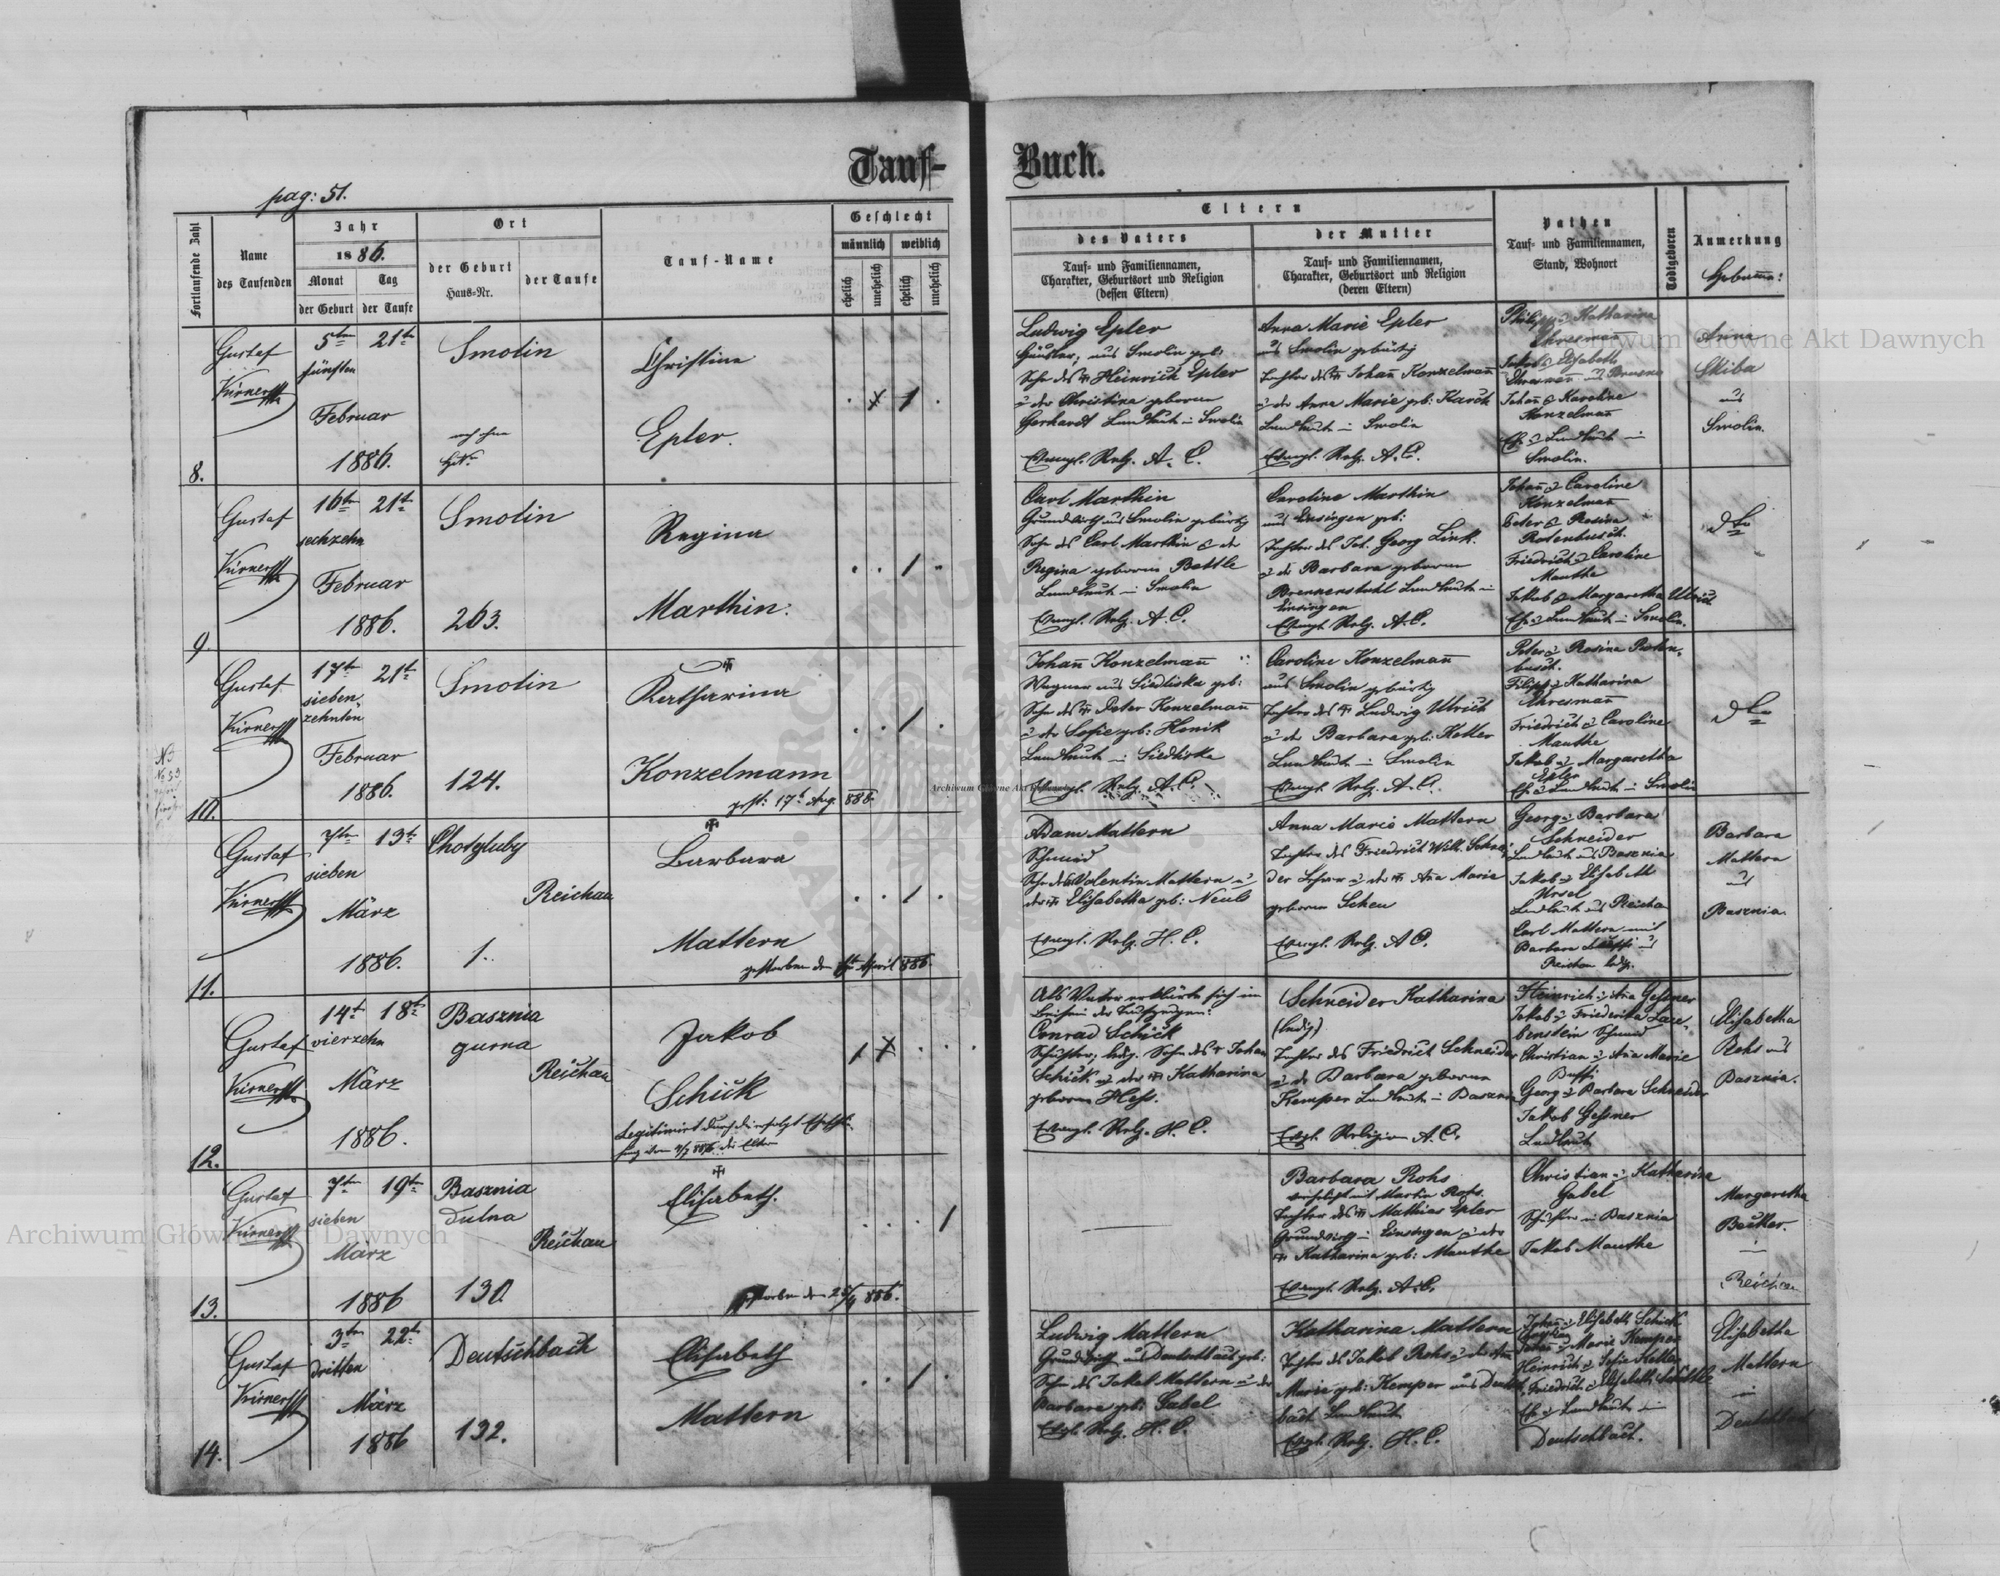 pag: 51.
Tauf- Buch.
Fortlaufende Zahl
Name
des Taufenden
Jahr
1886.
Monat
der Geburt
Tag
der Taufe
Ort
der Geburt
Haus-Nr.
der Taufe
Tauf-Name
Geschlecht
männlich
weiblich
ehelich
unehelich
ehelich
unehelich
Eltern
des Vaters
Tauf- und Familiennamen,
Charakter, Geburtsort und Religion
(dessen Eltern)
der Mutter
Tauf- und Familiennamen,
Charakter, Geburtsort und Religion
(deren Eltern)
Pathen
Tauf- und Familiennamen,
Stand, Wohnort
Todtgeboren
Anmerkung
8.
Gustaf
5ten 21te
fünften
Februar
1886.
Smolin
Christina
Epler.
Ludwig Epler
Häusler, aus Smolin geb.
Sohn des Heinrich Epler
u der Christina geborene
Gerhardt Landleute in Smolin
Evangl. Relg. A. C.
Anna Marie Epler
aus Smolin gebürtig
Tochter des Johann Konzelmann
u der Anna Marie geb: Karch
Landleute in Smolin
Evangl. Relg. A.C.
Philipp u Katharina
Ehresmann
Jakob u Elisabeth
Johann u Karoline
Konzelmann
Smolin.
Anna
Skiba
aus
Smolin.
9.
Gustaf
16ten 21te
sechzehn
Februar
1886.
Smolin
263.
Regina
Marthin.
Carl Marthin
Grundwirth aus Smolin gebürtig
Sohn des Carl Marthin u der
Regina geborene Bettle
Landleute in Smolin
Evangl. Relg. A.C.
Caroline Marthin
aus Einsingen geb:
Tochter des Joh. Georg Link.
u der Barbara geborene
Brennenstuhl Landleute in
Einsingen
Evangl. Relg. A.C.
Johann u Caroline
Konzelmann
Peter u Rosina
Rotenbusch.
Friedrich u Caroline
Manthe
Jakob u Margaretha Ulrich
Landleute in Smolin.
10.
Gustaf
17ten 21te
sieben-
zehnten
Februar
1886.
Smolin
124.
Katharina
Konzelmann
gest: 17t Aug. 886.
Johann Konzelmann
Wagner aus Siedliska geb:
Sohn des Peter Konzelmann
u der Sofie geb: Henik
Landleute in Siedliska
Evangl. Relg. A.C.
Caroline Konzelmann
aus Smolin gebürtig
Tochter des Ludwig Ulrich
u der Barbara geb: Keller
Landleute in Smolin
Evangl. Relg. A.C.
Peter u Rosina Roten-
busch.
Filipp u Katharina
Ehresmann
Friedrich u Caroline
Manthe
Jakob u Margaretha
Epler
Landleute in Smolin
11.
Gustaf
7ten 13te
sieben
März
1886.
Chotyluby
1.
Reichau
Barbara
Mattern
gestorben den April 886.
Adam Mattern
Schmied
Sohn des Valentin Mattern u
der Elisabetha geb: Neuls
Evangl. Relg. H. C.
Anna Marie Mattern
Tochter des Friedrich Wilh.
der Lehrer u der Ana Marie
geborene Scheu
Evangl. Relg. A C.
Georg u Barbara
Schneider
Landleute aus Basznia
Jakob u Elisabeth
Ursel
Landleute aus Reichau
Carl Mattern mit
Barbara
Reichau ledg.
Barbara
Mattern
aus
Basznia.
12.
Gustaf
14te 18te
vierzehn
März
1886.
Basznia
gurna
Reichau
Jakob
Schick
Legitimirt durch die erfolgte
Als Vater erklärte sich im
Beisein der Taufzeugen:
Conrad Schick
Schuster, ledg. Sohn des Johan
Schick u der Katharina
geborene Hess.
Evangl. Relg. H. C.
Schneider Katharina
(ledig)
Tochter des Friedrich Schneider
u der Barbara geborene
Kemper Landleute in Basznia
Evgl. Religion A.C.
Heinrich u Ana Gessner
Jakob u Friederika
benstein Schmied
Christian u Ana Marie
Georg u Barbara Schneider
Jakob Gessner
Landleute
Elisabetha
Rohs aus
Basznia.
13.
Gustaf
7ten 19te
sieben
März
1886
Basznia
dulna
130.
Reichau
Elisabeth.
gestorben den 886.
Barbara Rohs
verehelicht mit Martin Rohs.
Tochter des Mathias Epler
Grundwirth in Einsingen u der
Katharina geb: Manthe
Evangl. Relg. A.C.
Christian u Katharina
Gabel
Schuster in Basznia
Jakob Manthe
Margaretha
Becker.
in
Reichau
14.
Gustaf
3ten 22te
dritten
März
1886
Deutschbach
132.
Elisabeth
Mattern
Ludwig Mattern
Grundwirth aus Deutschbach geb:
Sohn des Jakob Mattern u der
Barbara geb: Gabel
Evgl. Relg. H. C.
Katharina Mattern
Tochter des Jakob Rohs u der Ana
Marie geb: Kemper aus Deutsch-
bach Landleute
Evgl. Relg. H. C.
Johann u Elisabeth Schick
Marie Kemper
Heinrich u Sofie Keller
Friedrich u Elisabeth
Landleute in
Deutschbach.
Elisabetha
Mattern
in
Deutschbach
Archiwum Główne Akt Dawnych
Archiwum Główne Akt Dawnych
Archiwum Główne Akt Dawnych